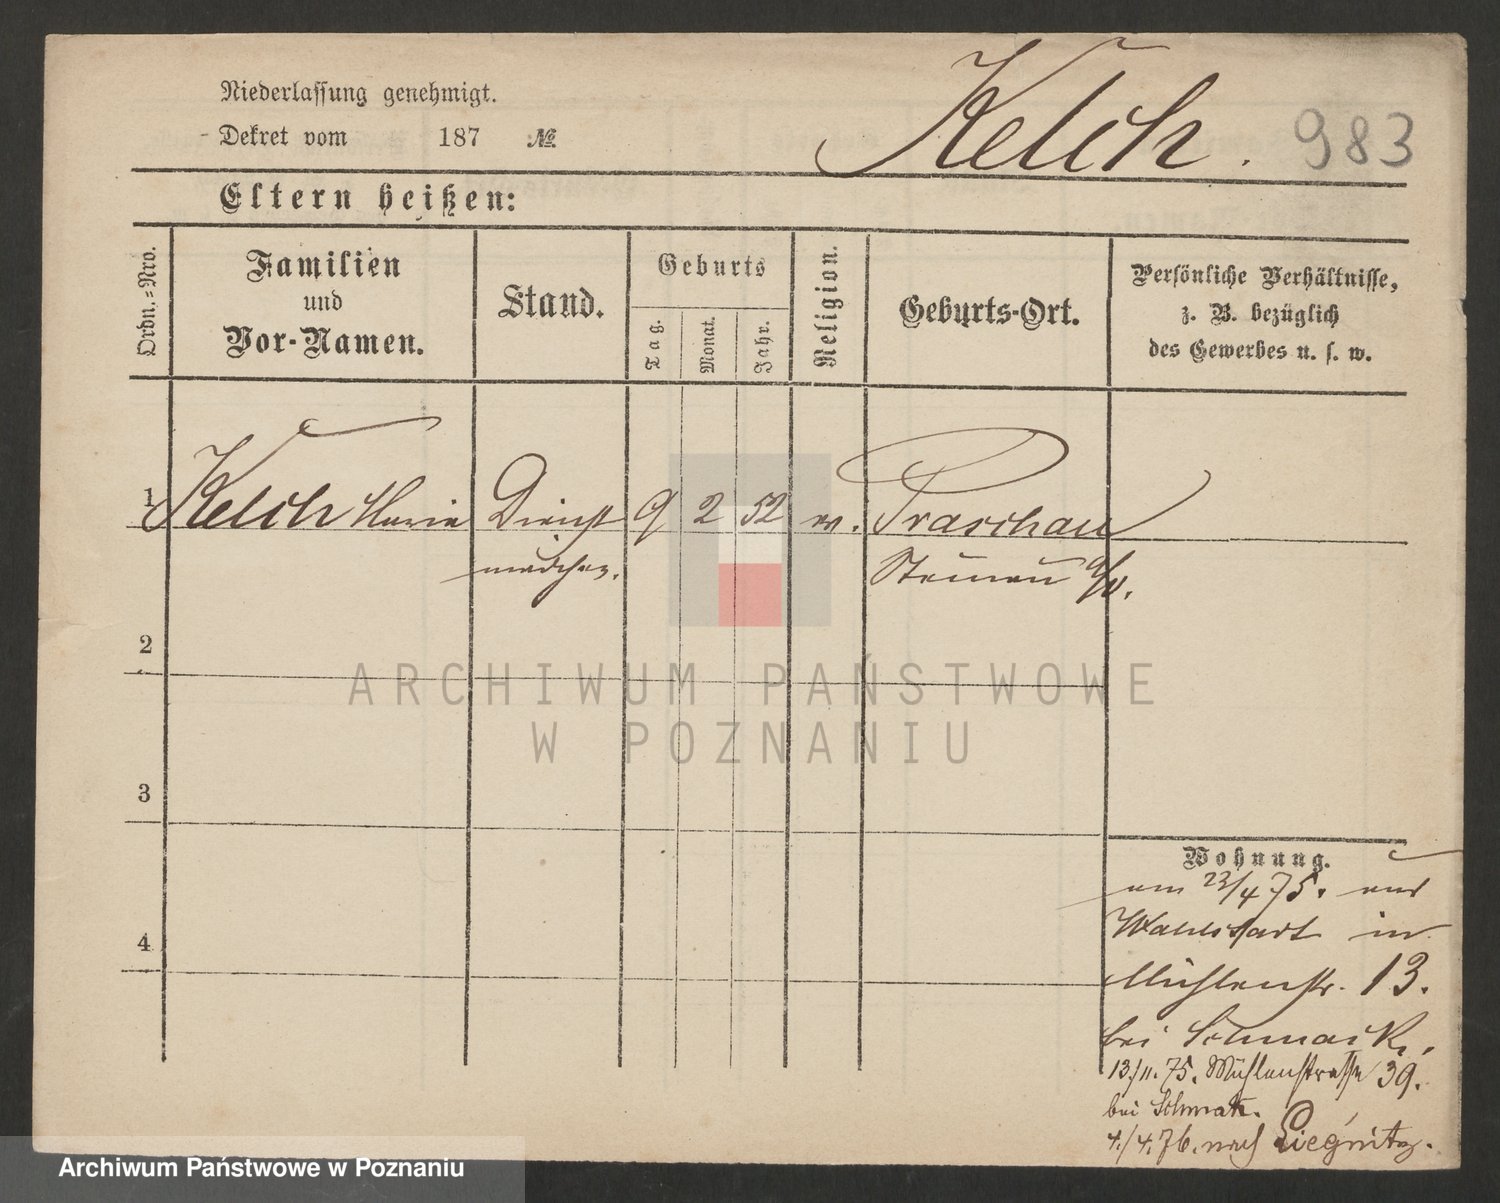 Niederlassung genehmigt.
Dekret vom 187 №
Kelch. 983
Eltern heißen:
Ordn.-Nro.
Familien und Vor-Namen.
Stand.
Geburts
Tag.
Monat.
Jahr.
Religion.
Geburts-Ort.
Persönliche Verhältnisse,
z. B. bezüglich
des Gewerbes u. s. w.
1 Kelch Marie Dienst 9 2 52 ev. Praschau
mädchen. Steinau a/O.
2
3
4
Wohnung.
am 23/4 75. aus
Wahlstadt in
Mühlenstr. 13.
bei Schmack.
13/11. 75. Mühlenstrasse 39.
bei Schmack.
4./4. 76. nach Liegnitz.
ARCHIWUM PAŃSTWOWE
W POZNANIU
Archiwum Państwowe w Poznaniu